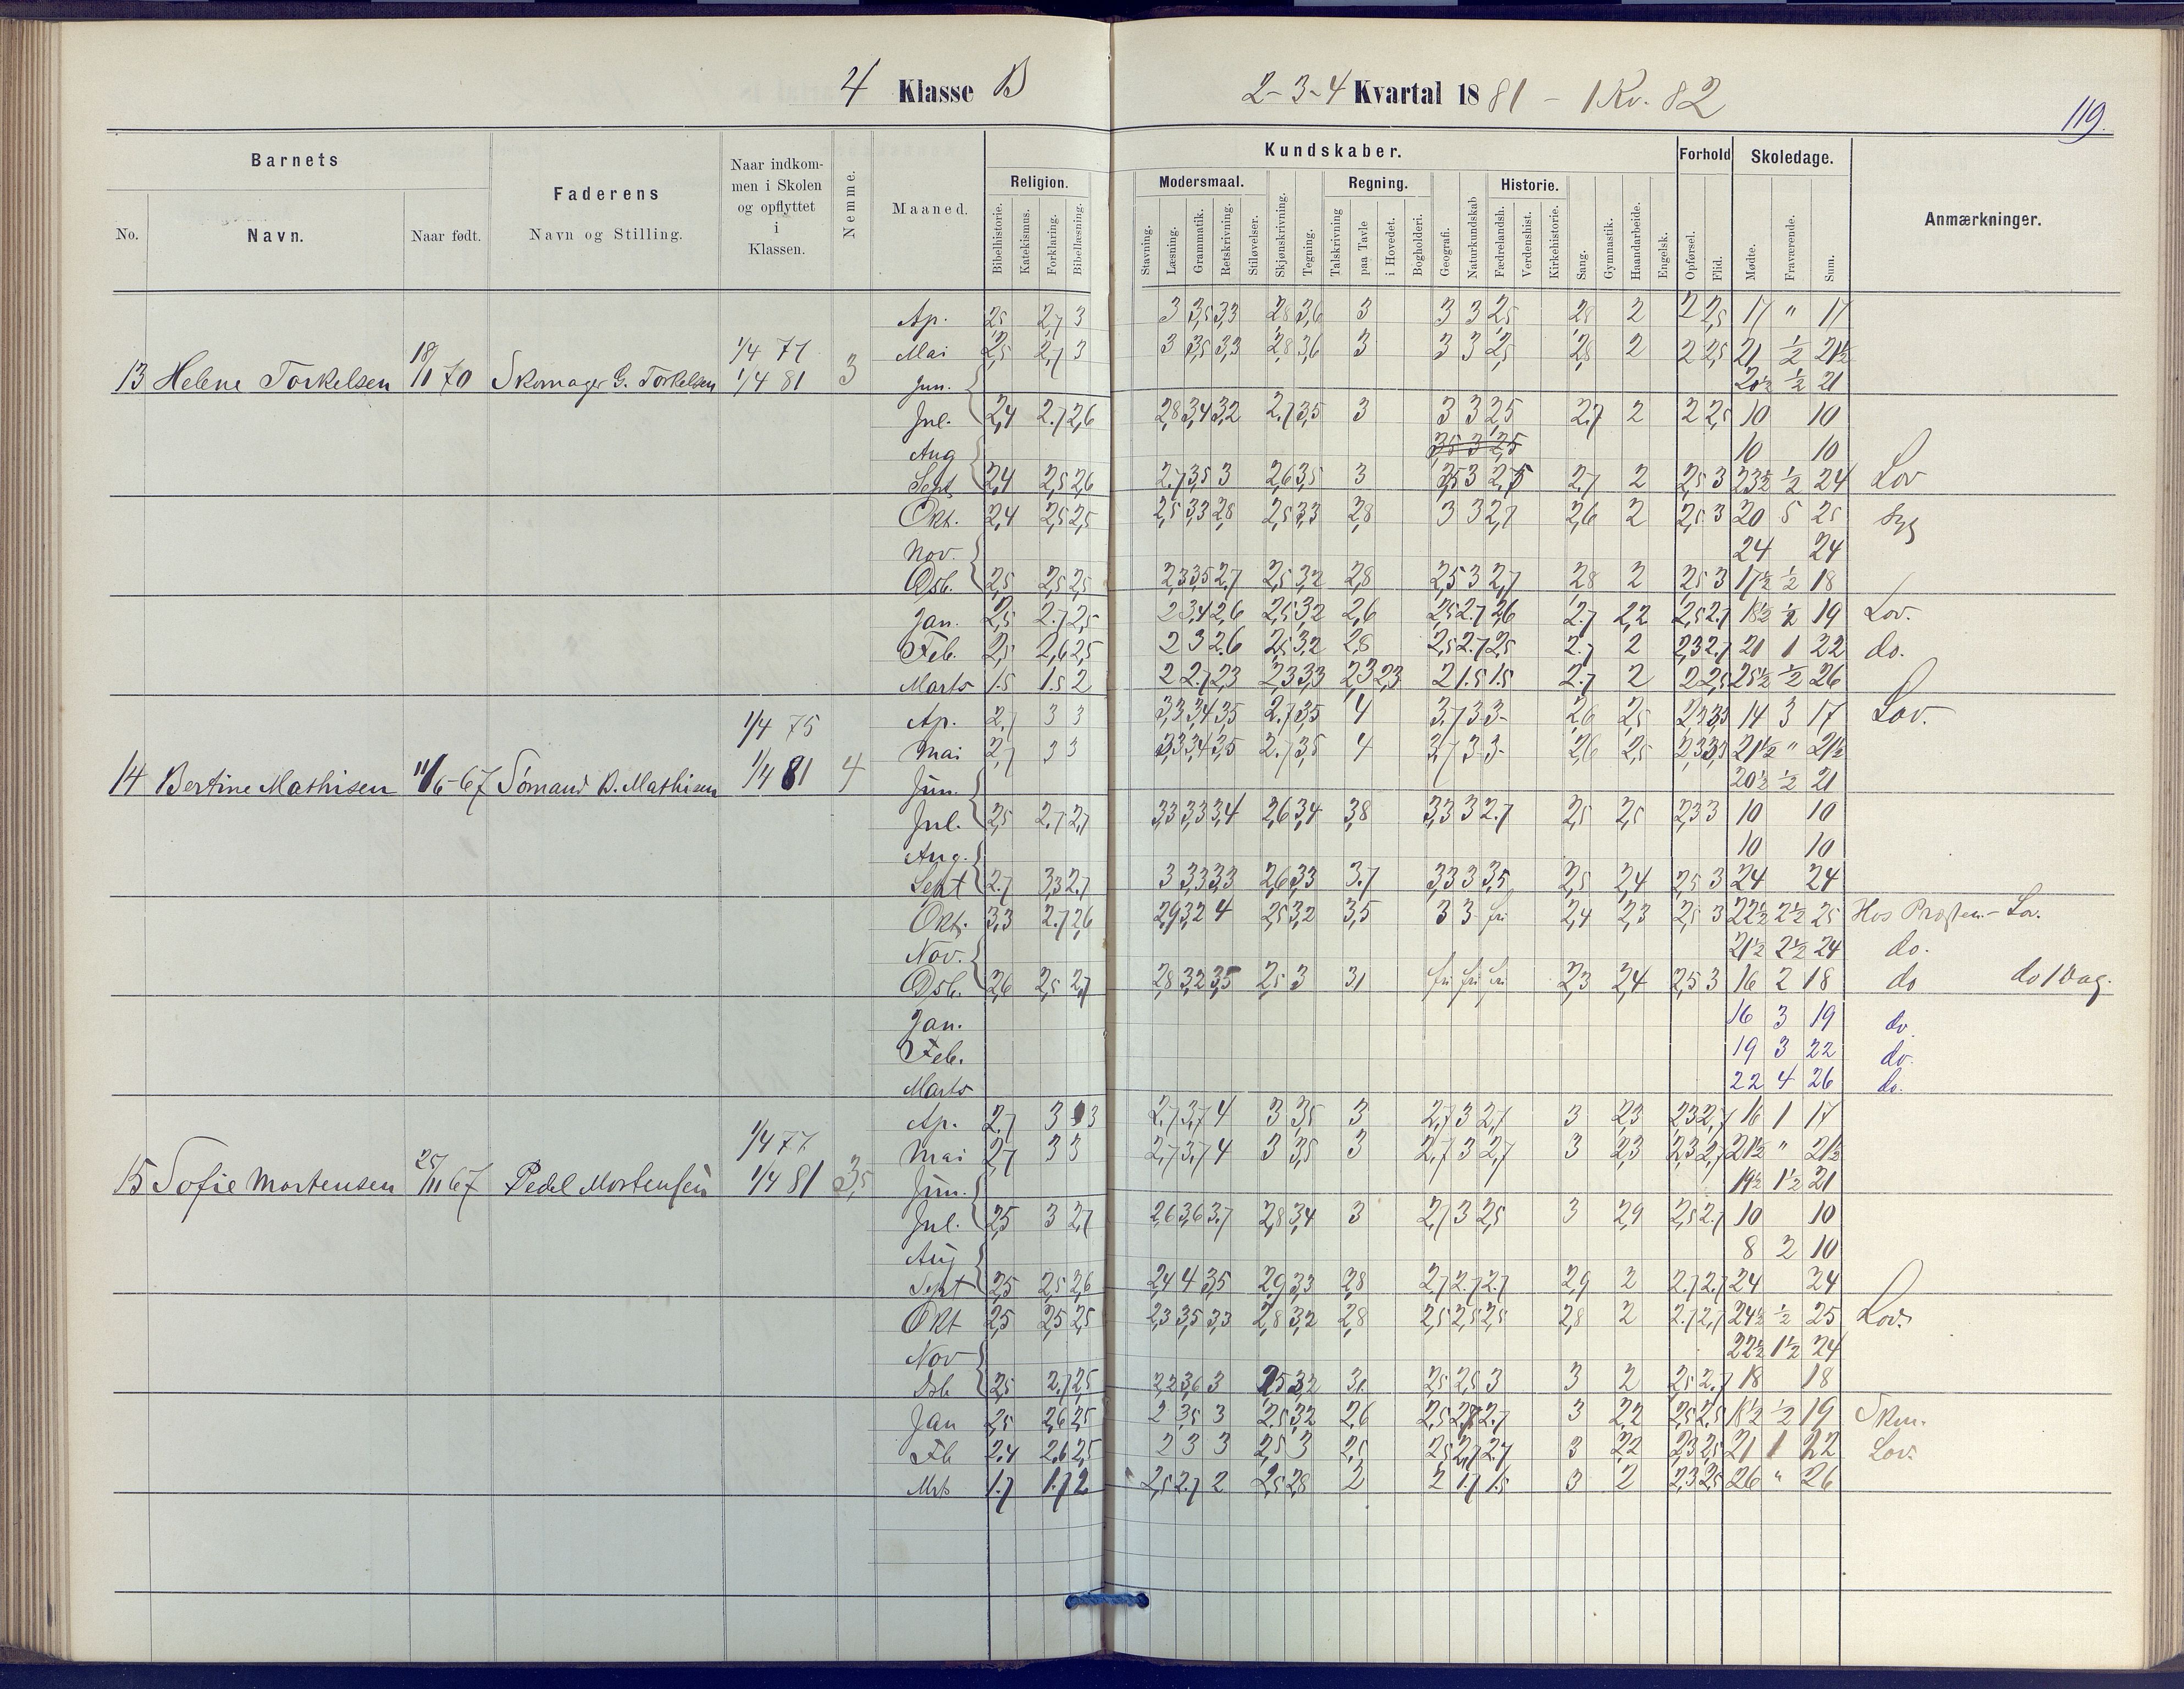 4 Klasse B
2-3-4 Kvartal 1881 - 1 Kv. 82
119.
Barnets
No.
Navn.
Naar født.
Faderens
Navn og Stilling.
Naar indkom-
men i Skolen
og opflyttet
i
Klassen.
Nemme.
Maaned.
Kundskaber.
Religion.
Bibelhistorie.
Katekismus.
Forklaring.
Bibellæsning.
Modersmaal.
Stavning.
Læsning.
Grammatik.
Retskrivning.
Stiløvelser.
Skjønskrivning.
Tegning.
Regning.
Talskrivning
paa Tavle
i Hovedet.
Bogholderi.
Geografi.
Naturkundskab
Historie.
Fædrelandsh.
Verdenshist.
Kirkehistorie.
Sang.
Gymnastik.
Haandarbeide.
Engelsk.
Forhold
Opførsel.
Flid.
Skoledage.
Mødte.
Fraværende.
Sum.
Anmærkninger.
13 Helene Torkelsen 18/11 70 Skomager G. Torkelsen 1/4 77 1/4 81 3
Ap. 2,5 2,7 3 3 3,5 3,3 2,8 3,6 3 3 3 2,5 2,8 2 2 2,5 17 " 17
Mai 2,5 2,7 3 3 3,5 3,3 2,8 3,6 3 3 3 2,5 2,8 2 2 2,5 21 ½ 21½
Jun. 20½ ½ 21
Jul. 2,4 2,7 2,6 2,8 3,4 3,2 2,7 3,5 3 3 3 2,5 2,7 2 2 2,5 10 10
Aug 3,5 3 2,5 10 10
Sept 2,4 2,5 2,6 2,7 3,5 3 2,6 3,5 3 2,5 3 2,7 2,7 2 2,5 3 23½ ½ 24 Lov
Okt. 2,4 2,5 2,5 2,5 3,3 2,8 2,5 3,3 2,8 3 3 2,7 2,6 2 2,5 3 20 5 25 Syg
Nov. 24 24
Dsb. 2,5 2,5 2,5 2,3 3,5 2,7 2,5 3,2 2,8 2,5 3 2,7 2,8 2 2,5 3 17½ ½ 18
Jan. 2,5 2,7 2,5 2 3,4 2,6 2,5 3,2 2,6 2,5 2,7 2,6 2,7 2,2 2,5 2,7 18½ ½ 19 Lov.
Feb. 2,5 2,6 2,5 2 3 2,6 2,5 3,2 2,8 2,5 2,7 2,5 2,7 2 2,3 2,7 21 1 22 do.
Marts 1.5 1.5 2 2 2.7 2,3 2,3 3,3 2,3 2,3 2 1.5 1.5 2,7 2 2 2,5 25½ ½ 26
14 Bertine Mathisen 11/6-67 Sømand B. Mathisen 1/4 75 1/4 81 4
Ap. 2,7 3 3 3,3 3,4 3,5 2,7 3,5 4 3,7 3 3 2,6 2,5 2,3 3,3 14 3 17 Lov.
Mai 2,7 3 3 3,3 3,4 3,5 2,7 3,5 4 3,7 3 3 2,6 2,5 2,3 3,3 21½ " 21½
Jun. 20½ ½ 21
Jul. 2,5 2,7 2,7 3,3 3,3 3,4 2,6 3,4 3,8 3,3 3 2.7 2,5 2,5 2,3 3 10 10
Aug. 10 10
Sept 2.7 3,3 2.7 3 3,3 3,3 2,6 3,3 3.7 3,3 3 3,5 2,5 2,4 2,5 3 24 24
Okt. 3,3 2.7 2,6 2,9 3,2 4 2,5 3,2 3,5 3 3 fri 2,4 2,3 2,5 3 22½ 2½ 25 Hos Præsten - Lov.
Nov. 21½ 2½ 24 do.
Dsb. 2,6 2,5 2,7 2,8 3,2 3,5 2,5 3 3,1 fri fri fri 2,3 2,4 2,5 3 16 2 18 do do 1 Dag.
Jan. 16 3 19 do
Feb. 19 3 22 do.
Marts 22 4 26 do.
15 Sofie Mortensen 25/11 67 Pedel Mortensen 1/4 77 1/4 81 3,5
Ap. 2.7 3 3 2,7 3,7 4 3 3,5 3 2,7 3 2,7 3 2,3 2,3 2,7 16 1 17
Mai 2,7 3 3 2,7 3,7 4 3 3,5 3 2,7 3 2,7 3 2,3 2,3 2,7 21½ " 21½
Jun. 19½ 1½ 21
Jul. 2,5 3 2,7 2,6 3,6 3.7 2,8 3,4 3 2,7 3 2,5 3 2,9 2,5 2.7 10 10
Aug 8 2 10
Sept 2,5 2,5 2,6 2,4 4 3,5 2,9 3,3 2,8 2,7 2,7 2,7 2,9 2 2.7 2.7 24 24
Okt 2,5 2,5 2,5 2,3 3,5 3,3 2,8 3,2 2,8 2,5 2,5 2,5 2,8 2 2.7 2,7 24½ ½ 25 Lov.
Nov 22½ 1½ 24
Dsb 2,5 2.7 2,5 2,2 3,6 3 2,5 3,2 3,1 2,5 2,5 3 3 2 2,5 2.7 18 18
Jan 2,5 2,6 2,5 2 3,5 3 2,5 3,2 2,6 2,5 2,8 2,7 3 2,2 2,5 2,5 18½ ½ 19
Fb 2.4 2.6 2,5 2 3 3 2,5 3 2,5 2,5 2,7 2,7 3 2,2 2,3 2,5 21 1 22 Lov.
Mrts 1.7 1.7 2 2,5 2.7 2 2,5 2,8 2 2 1.7 1.5 3 2 2,3 2,5 26 " 26